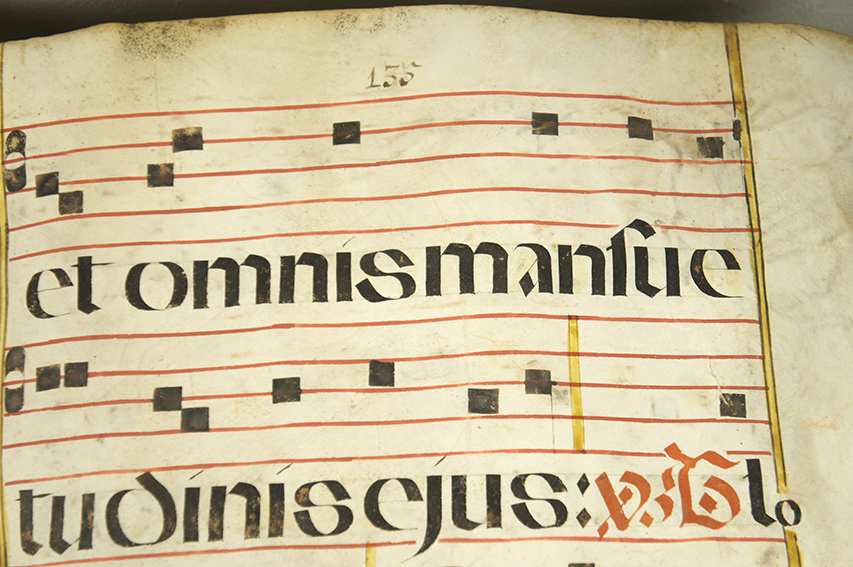 135
et omnis manſue
tudinis ejus: ℣. Glo